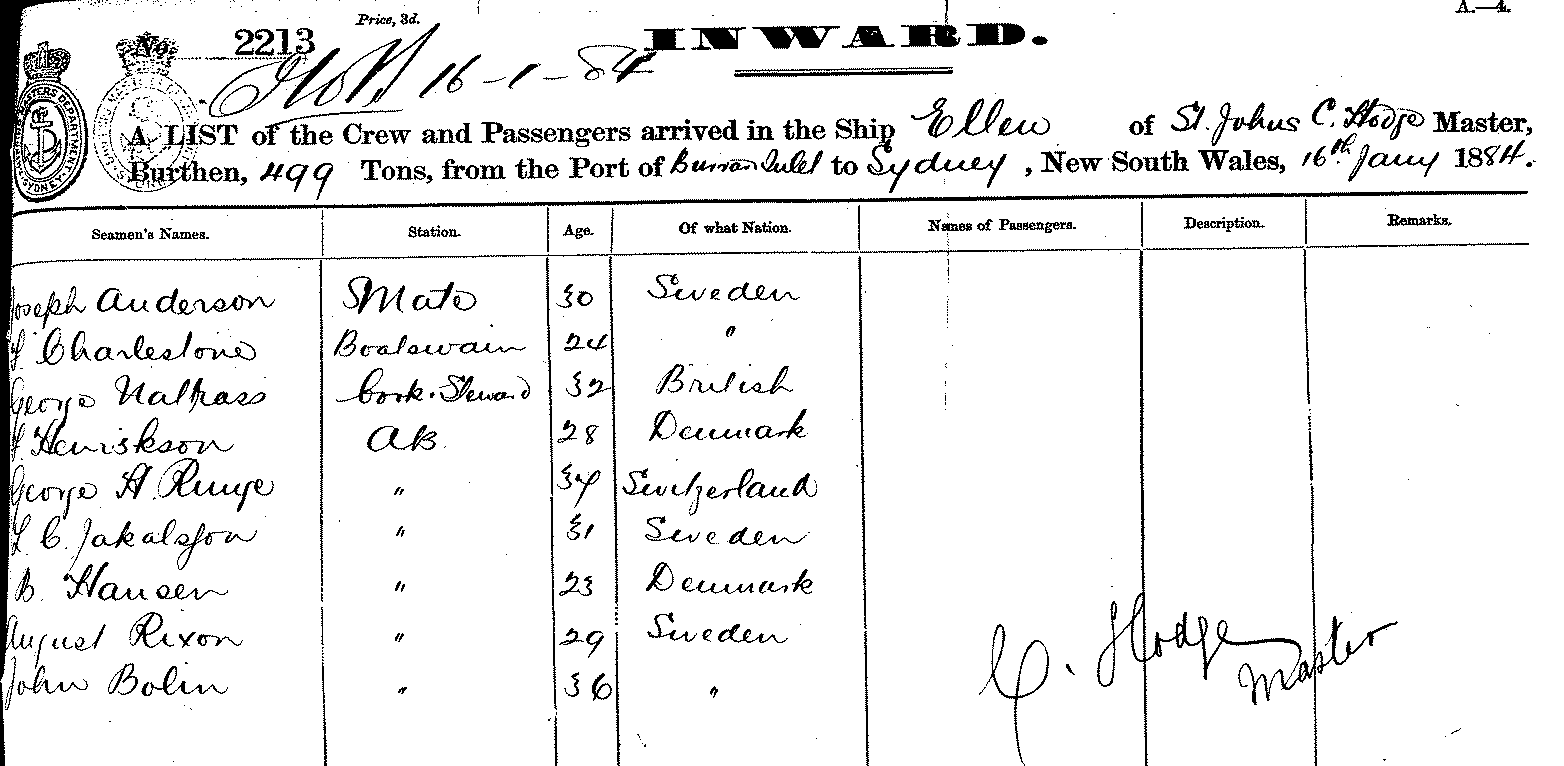 A.—4.
Price, 3d.
No. 2213
INWARD.
16-1-84
A LIST of the Crew and Passengers arrived in the Ship Ellen of St. Johns C. Hodge Master,
Burthen, 499 Tons, from the Port of Burrard Inlet to Sydney, New South Wales, 16th Jany 1884.
Seamen's Names. Station. Age. Of what Nation. Names of Passengers. Description. Remarks.
Joseph Anderson Mate 30 Sweden
Charlestone Boatswain 24 "
George Nattrass Cook. Steward 32 British
Henriskson AB. 28 Denmark
George H. Runge " 34 Switzerland
L. C. Jakalsson " 31 Sweden
B. Hansen " 23 Denmark
August Rixon " 29 Sweden
John Bolin " 36 "
C. Hodge
Master